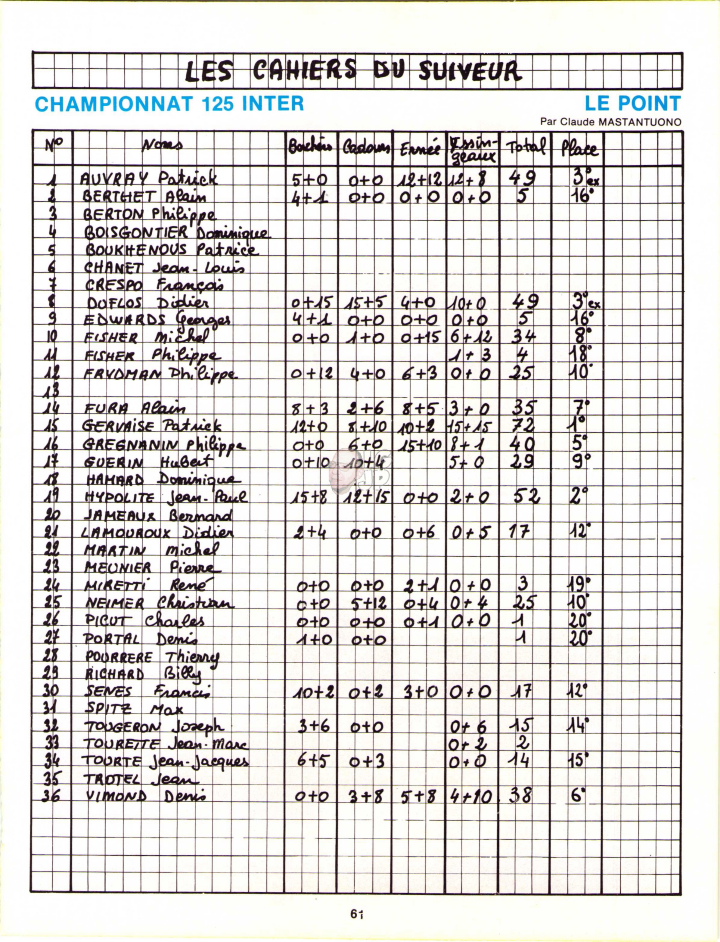 LES CAHIERS DU SUIVEUR
CHAMPIONNAT 125 INTER LE POINT
Par Claude MASTANTUONO
N° Noms Cadours Ernée Essin-geaux Total Place
1 AUVRAY Patrick 5+0 0+0 12+12 12+8 49 3°ex
2 BERTHET Alain 4+1 0+0 0+0 0+0 5 16°
3 BERTON Philippe
4 BOISGONTIER Dominique
5 BOUKHENOUS Patrice
6 CHANET Jean-Louis
7 CRESPO François
8 DUFLOS Didier 0+15 15+5 4+0 10+0 49 3°ex
9 EDWARDS Georges 4+1 0+0 0+0 0+0 5 16°
10 FISHER Michel 0+0 1+0 0+15 6+12 34 8°
11 FISHER Philippe 1+3 4 18°
12 FRYDMAN Philippe 0+12 4+0 6+3 0+0 25 10°
13
14 FURA Alain 8+3 2+6 8+5 3+0 35 7°
15 GERVAISE Patrick 12+0 8+10 10+2 15+15 72 1°
16 GREGNANIN Philippe 0+0 6+0 15+10 8+1 40 5°
17 GUERIN Hubert 0+10 10+4 5+0 29 9°
18 HAMARD Dominique
19 HYPOLITE Jean-Paul 15+8 12+15 0+0 2+0 52 2°
20 JAMEAUX Bernard
21 LAMOUROUX Didier 2+4 0+0 0+6 0+5 17 12°
22 MARTIN Michel
23 MEUNIER Pierre
24 MIRETTI René 0+0 0+0 2+1 0+0 3 19°
25 NEIMER Christian 0+0 5+12 0+4 0+4 25 10°
26 PICUT Charles 0+0 0+0 0+1 0+0 1 20°
27 PORTAL Denis 1+0 0+0 1 20°
28 POURRERE Thierry
29 RICHARD Billy
30 SENES Francis 10+2 0+2 3+0 0+0 17 12°
31 SPITZ Max
32 TOUGERON Joseph 3+6 0+0 0+6 15 14°
33 TOURETTE Jean-Marc 0+2 2
34 TOURTE Jean-Jacques 6+5 0+3 0+0 14 15°
35 TROTEL Jean
36 VIMOND Denis 0+0 3+8 5+8 4+10 38 6°
61